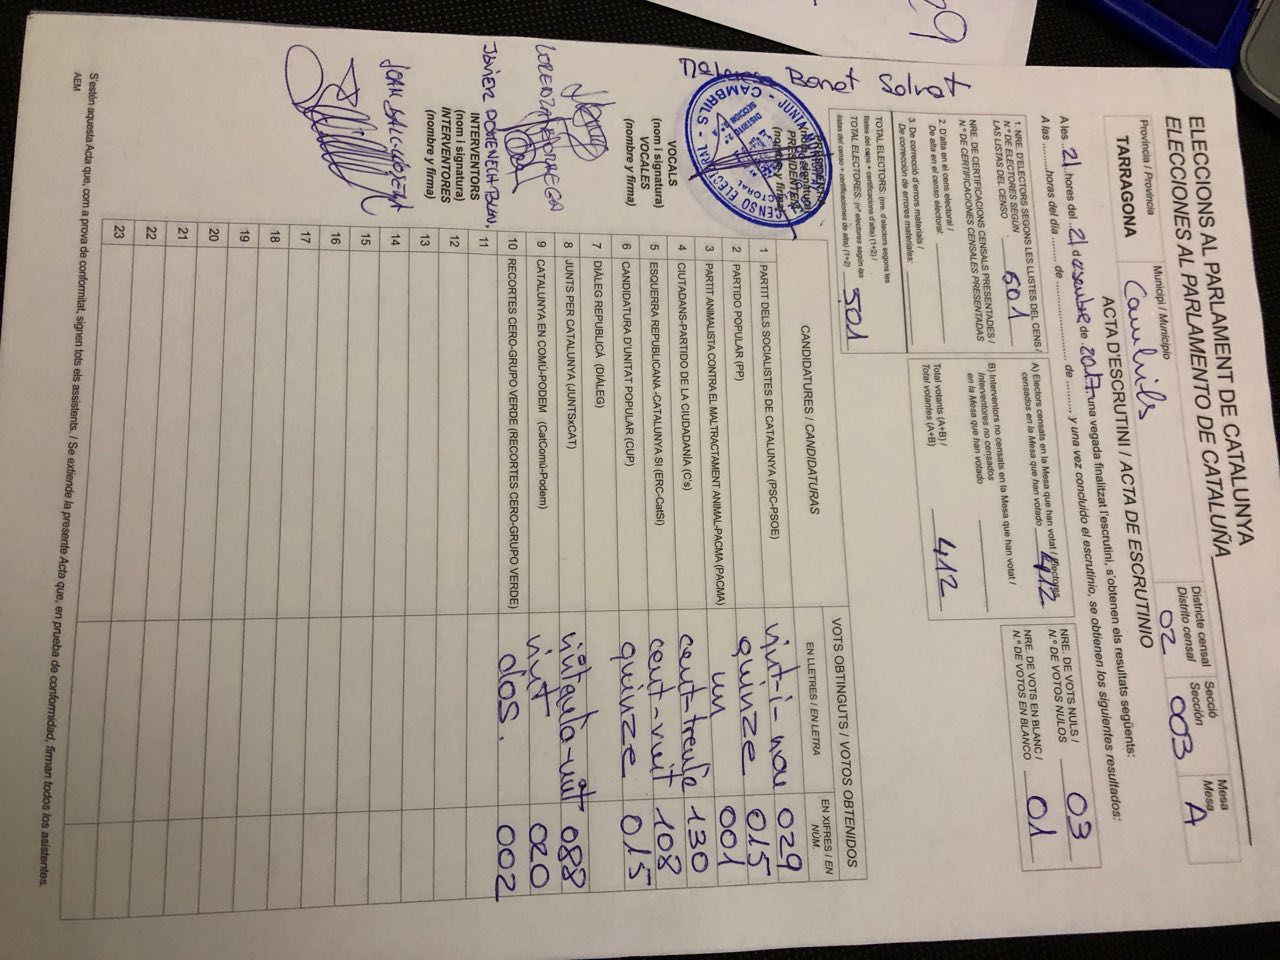 ELECCIONS AL PARLAMENT DE CATALUNYA
ELECCIONES AL PARLAMENTO DE CATALUÑA
Província / Provincia
TARRAGONA
Municipi / Municipio
Cambrils
Districte censal
Distrito censal
02
Secció
Sección
003
Mesa
Mesa
A
ACTA D'ESCRUTINI / ACTA DE ESCRUTINIO
A les 21 hores del 21 desembre de 2017 una vegada finalitzat l'escrutini, s'obtenen els resultats següents:
A las ........horas del día ........ de ........................ de ........, y una vez concluido el escrutinio, se obtienen los siguientes resultados:
1. NRE. D'ELECTORS SEGONS LES LLISTES DEL CENS /
N.º DE ELECTORES SEGÚN
LAS LISTAS DEL CENSO
501
NRE. DE CERTIFICACIONS CENSALS PRESENTADES /
N.º DE CERTIFICACIONES CENSALES PRESENTADAS
2. D'alta en el cens electoral /
De alta en el censo electoral:
3. De correcció d'errors materials /
De corrección de errores materiales:
TOTAL ELECTORS: (nre. d'electors segons les
llistes del cens + certificacions d'alta) (1+2) /
TOTAL ELECTORES: (nº electores según las
listas del censo + certificaciones de alta) (1+2)
501
A) Electors censats en la Mesa que han votat / Electores
censados en la Mesa que han votado
412
B) Interventors no censats en la Mesa que han votat /
Interventores no censados
en la Mesa que han votado
Total votants (A+B) /
Total votantes (A+B)
412
NRE. DE VOTS NULS /
N.º DE VOTOS NULOS
03
NRE. DE VOTS EN BLANC /
N.º DE VOTOS EN BLANCO
01
CANDIDATURES / CANDIDATURAS
VOTS OBTINGUTS / VOTOS OBTENIDOS
EN LLETRES / EN LETRA
EN XIFRES / EN NÚM.
1 PARTIT DELS SOCIALISTES DE CATALUNYA (PSC-PSOE) vint-i-nou 029
2 PARTIDO POPULAR (PP) quinze 015
3 PARTIT ANIMALISTA CONTRA EL MALTRACTAMENT ANIMAL-PACMA (PACMA) un 001
4 CIUTADANS-PARTIDO DE LA CIUDADANÍA (C's) cent-trenta 130
5 ESQUERRA REPUBLICANA -CATALUNYA SÍ (ERC-CatSí) cent-vuit 108
6 CANDIDATURA D'UNITAT POPULAR (CUP) quinze 015
7 DIÀLEG REPUBLICÀ (DIÀLEG)
8 JUNTS PER CATALUNYA (JUNTSxCAT) 088
9 CATALUNYA EN COMÚ-PODEM (CatComú-Podem) vint 020
10 RECORTES CERO-GRUPO VERDE (RECORTES CERO-GRUPO VERDE) dos. 002
11
12
13
14
15
16
17
18
19
20
21
22
23
Bonet Solvat
PRESIDENTE/A
(nombre y firma)
JUNTA ELECTORAL CAMBRILS
CENSO ELECTORAL
VOCALS
(nom i signatura)
VOCALES
(nombre y firma)
JAVIER DOMENECH
INTERVENTORS
(nom i signatura)
INTERVENTORES
(nombre y firma)
JOAN
S'estén aquesta Acta que, com a prova de conformitat, signen tots els assistents. / Se extiende la presente Acta que, en prueba de conformidad, firman todos los asistentes.
AEM
29